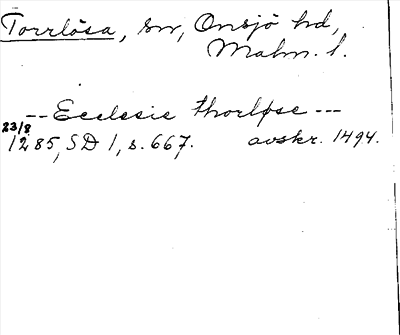 Torrlösa, sn, Onsjö hd,
Malm. l.
-- Ecclesie thorløse ---
23/8
1285, SD 1, s. 667. avskr. 1494.